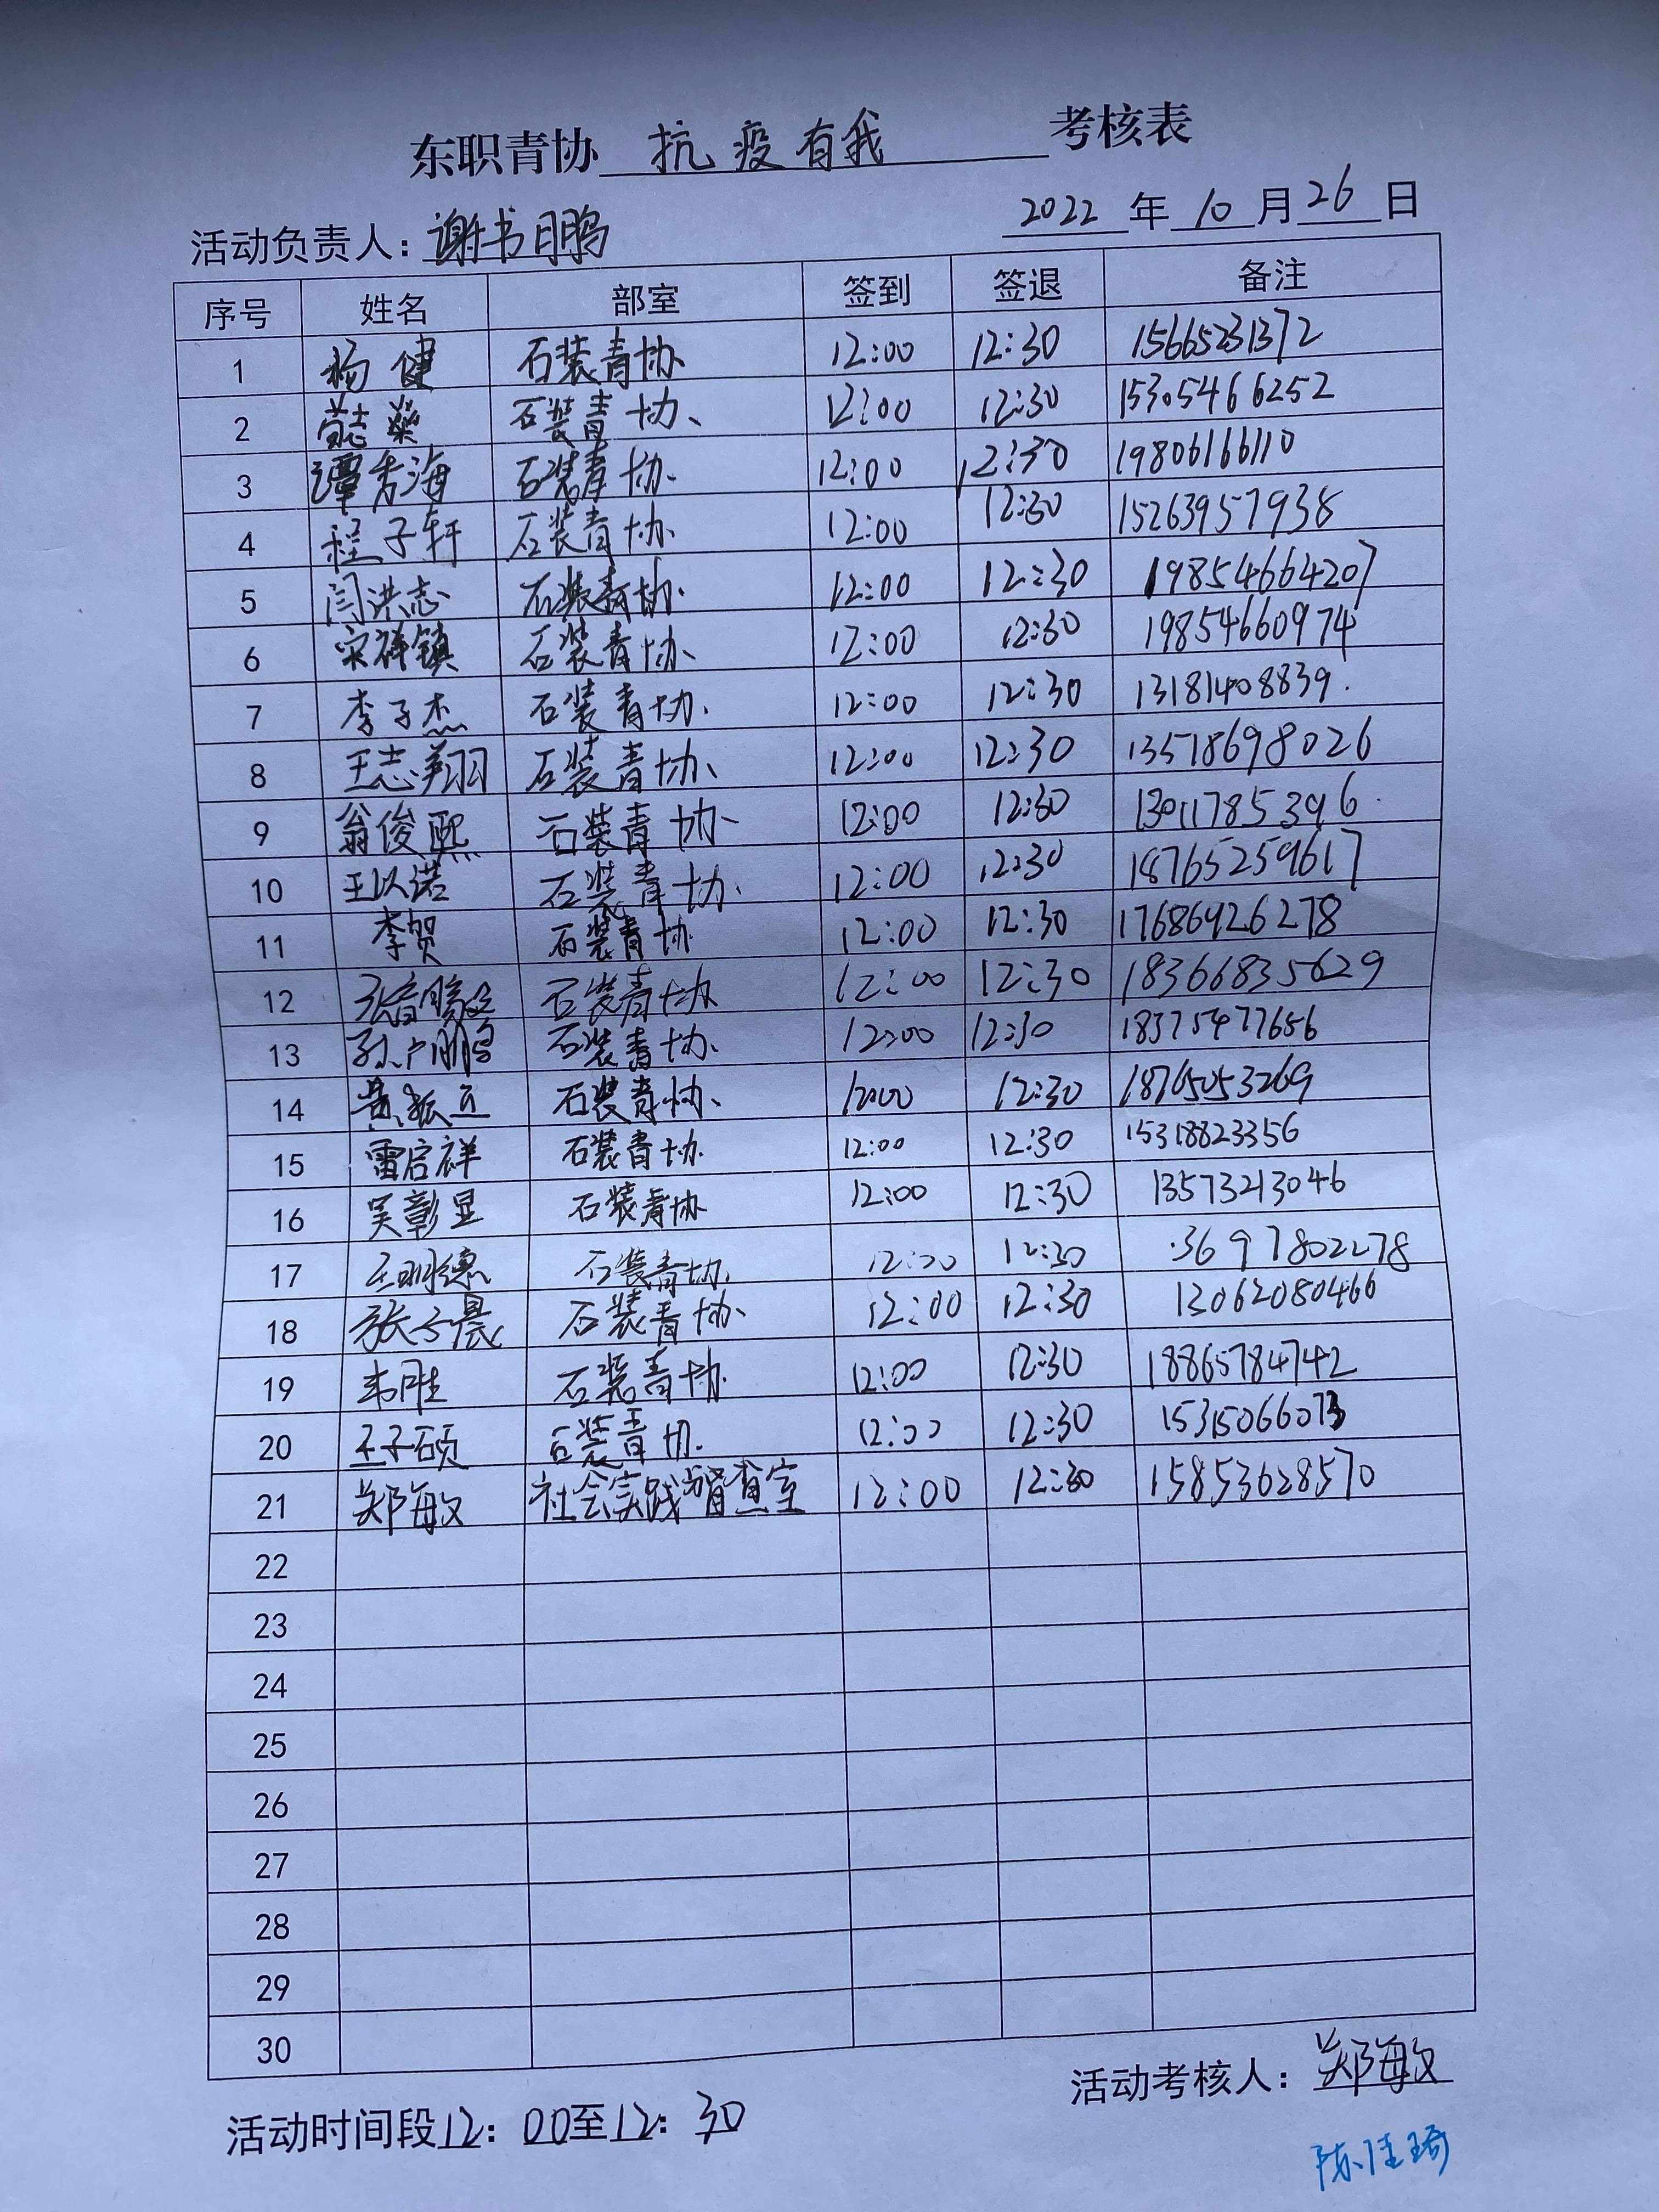 东职青协 抗疫有我 考核表
活动负责人：谢书鹏 2022 年 10 月 26 日
序号 姓名 部室 签到 签退 备注
1 杨健 石装青协 12:00 12:30 15665231372
2 石装青协 12:00 12:30 15305466252
3 谭秀海 石装青协 12:00 12:30 19806166110
4 程子轩 石装青协 12:00 12:30 15263957938
5 闫洪志 石装青协 12:00 12:30 19854664207
6 宋祥镇 石装青协 12:00 12:30 19854660974
7 李子杰 石装青协 12:00 12:30 13181408839
8 王志翔 石装青协 12:00 12:30 13518698026
9 翁俊熙 石装青协 12:00 12:30 13011785396
10 王以诺 石装青协 12:00 12:30 18765259617
11 李贺 石装青协 12:00 12:30 17686926278
12 石装青协 12:00 12:30 18366835629
13 石装青协 12:00 12:30 18375477656
14 黄振立 石装青协 12:00 12:30 18765053269
15 雷启祥 石装青协 12:00 12:30 15318823356
16 吴彰显 石装青协 12:00 12:30 13573213046
17 王明德 石装青协 12:00 12:30 13697802278
18 张子晨 石装青协 12:00 12:30 13062080466
19 韦胜 石装青协 12:00 12:30 18865784742
20 王子硕 石装青协 12:00 12:30 15315066073
21 郑敏 社会实践督查室 12:00 12:30 15853628570
22
23
24
25
26
27
28
29
30
活动考核人：郑敏
活动时间段12：00至12：30
陈佳琦